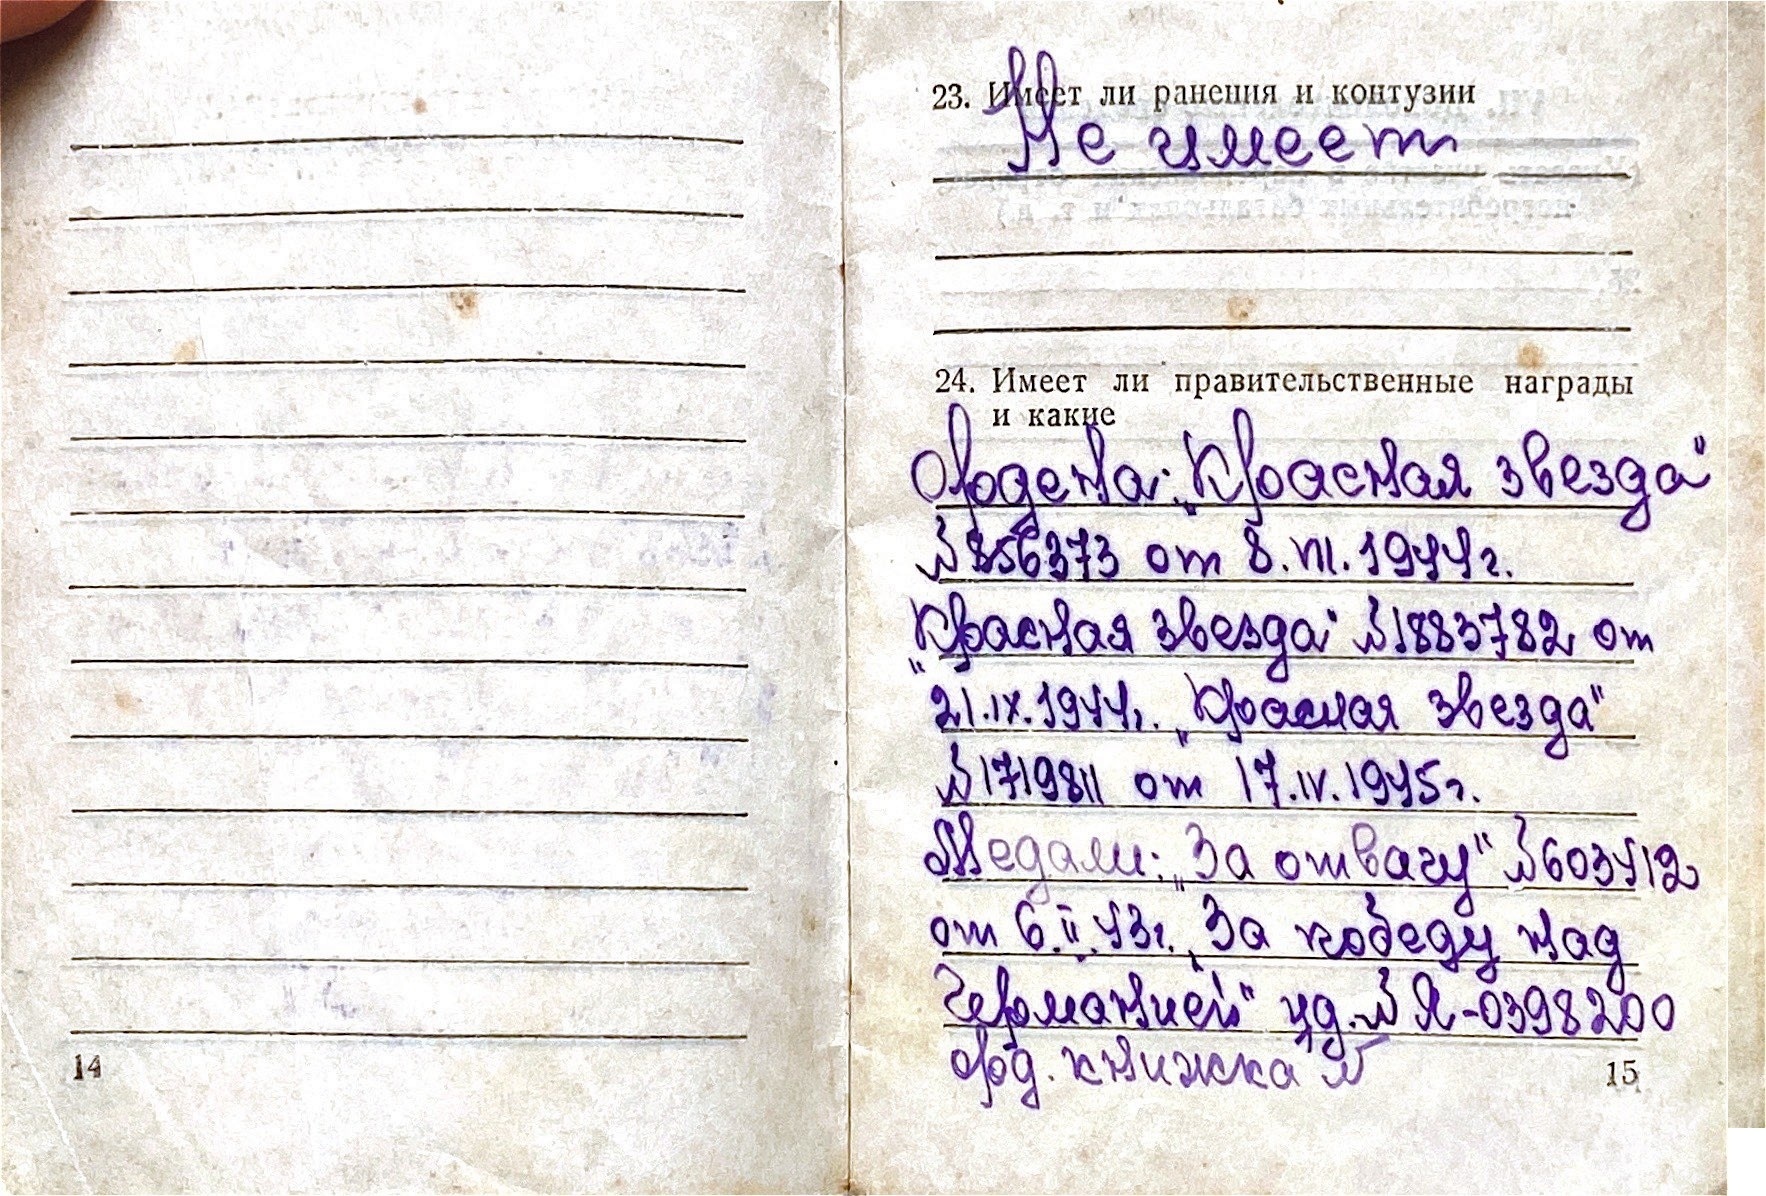 23. Имеет ли ранения и контузии
Не имеет
24. Имеет ли правительственные награды
и какие
Ордена: „Красная звезда“
№856373 от 8.VII.1944г.
„Красная звезда“ №1883782 от
21.IX.1944г. „Красная звезда“
№1719811 от 17.IV.1945г.
Медали: „За отвагу“ №603412
от 6.II.43г. „За победу над
Германией“ уд.№ Я-0398200
орд. книжка №
14
15